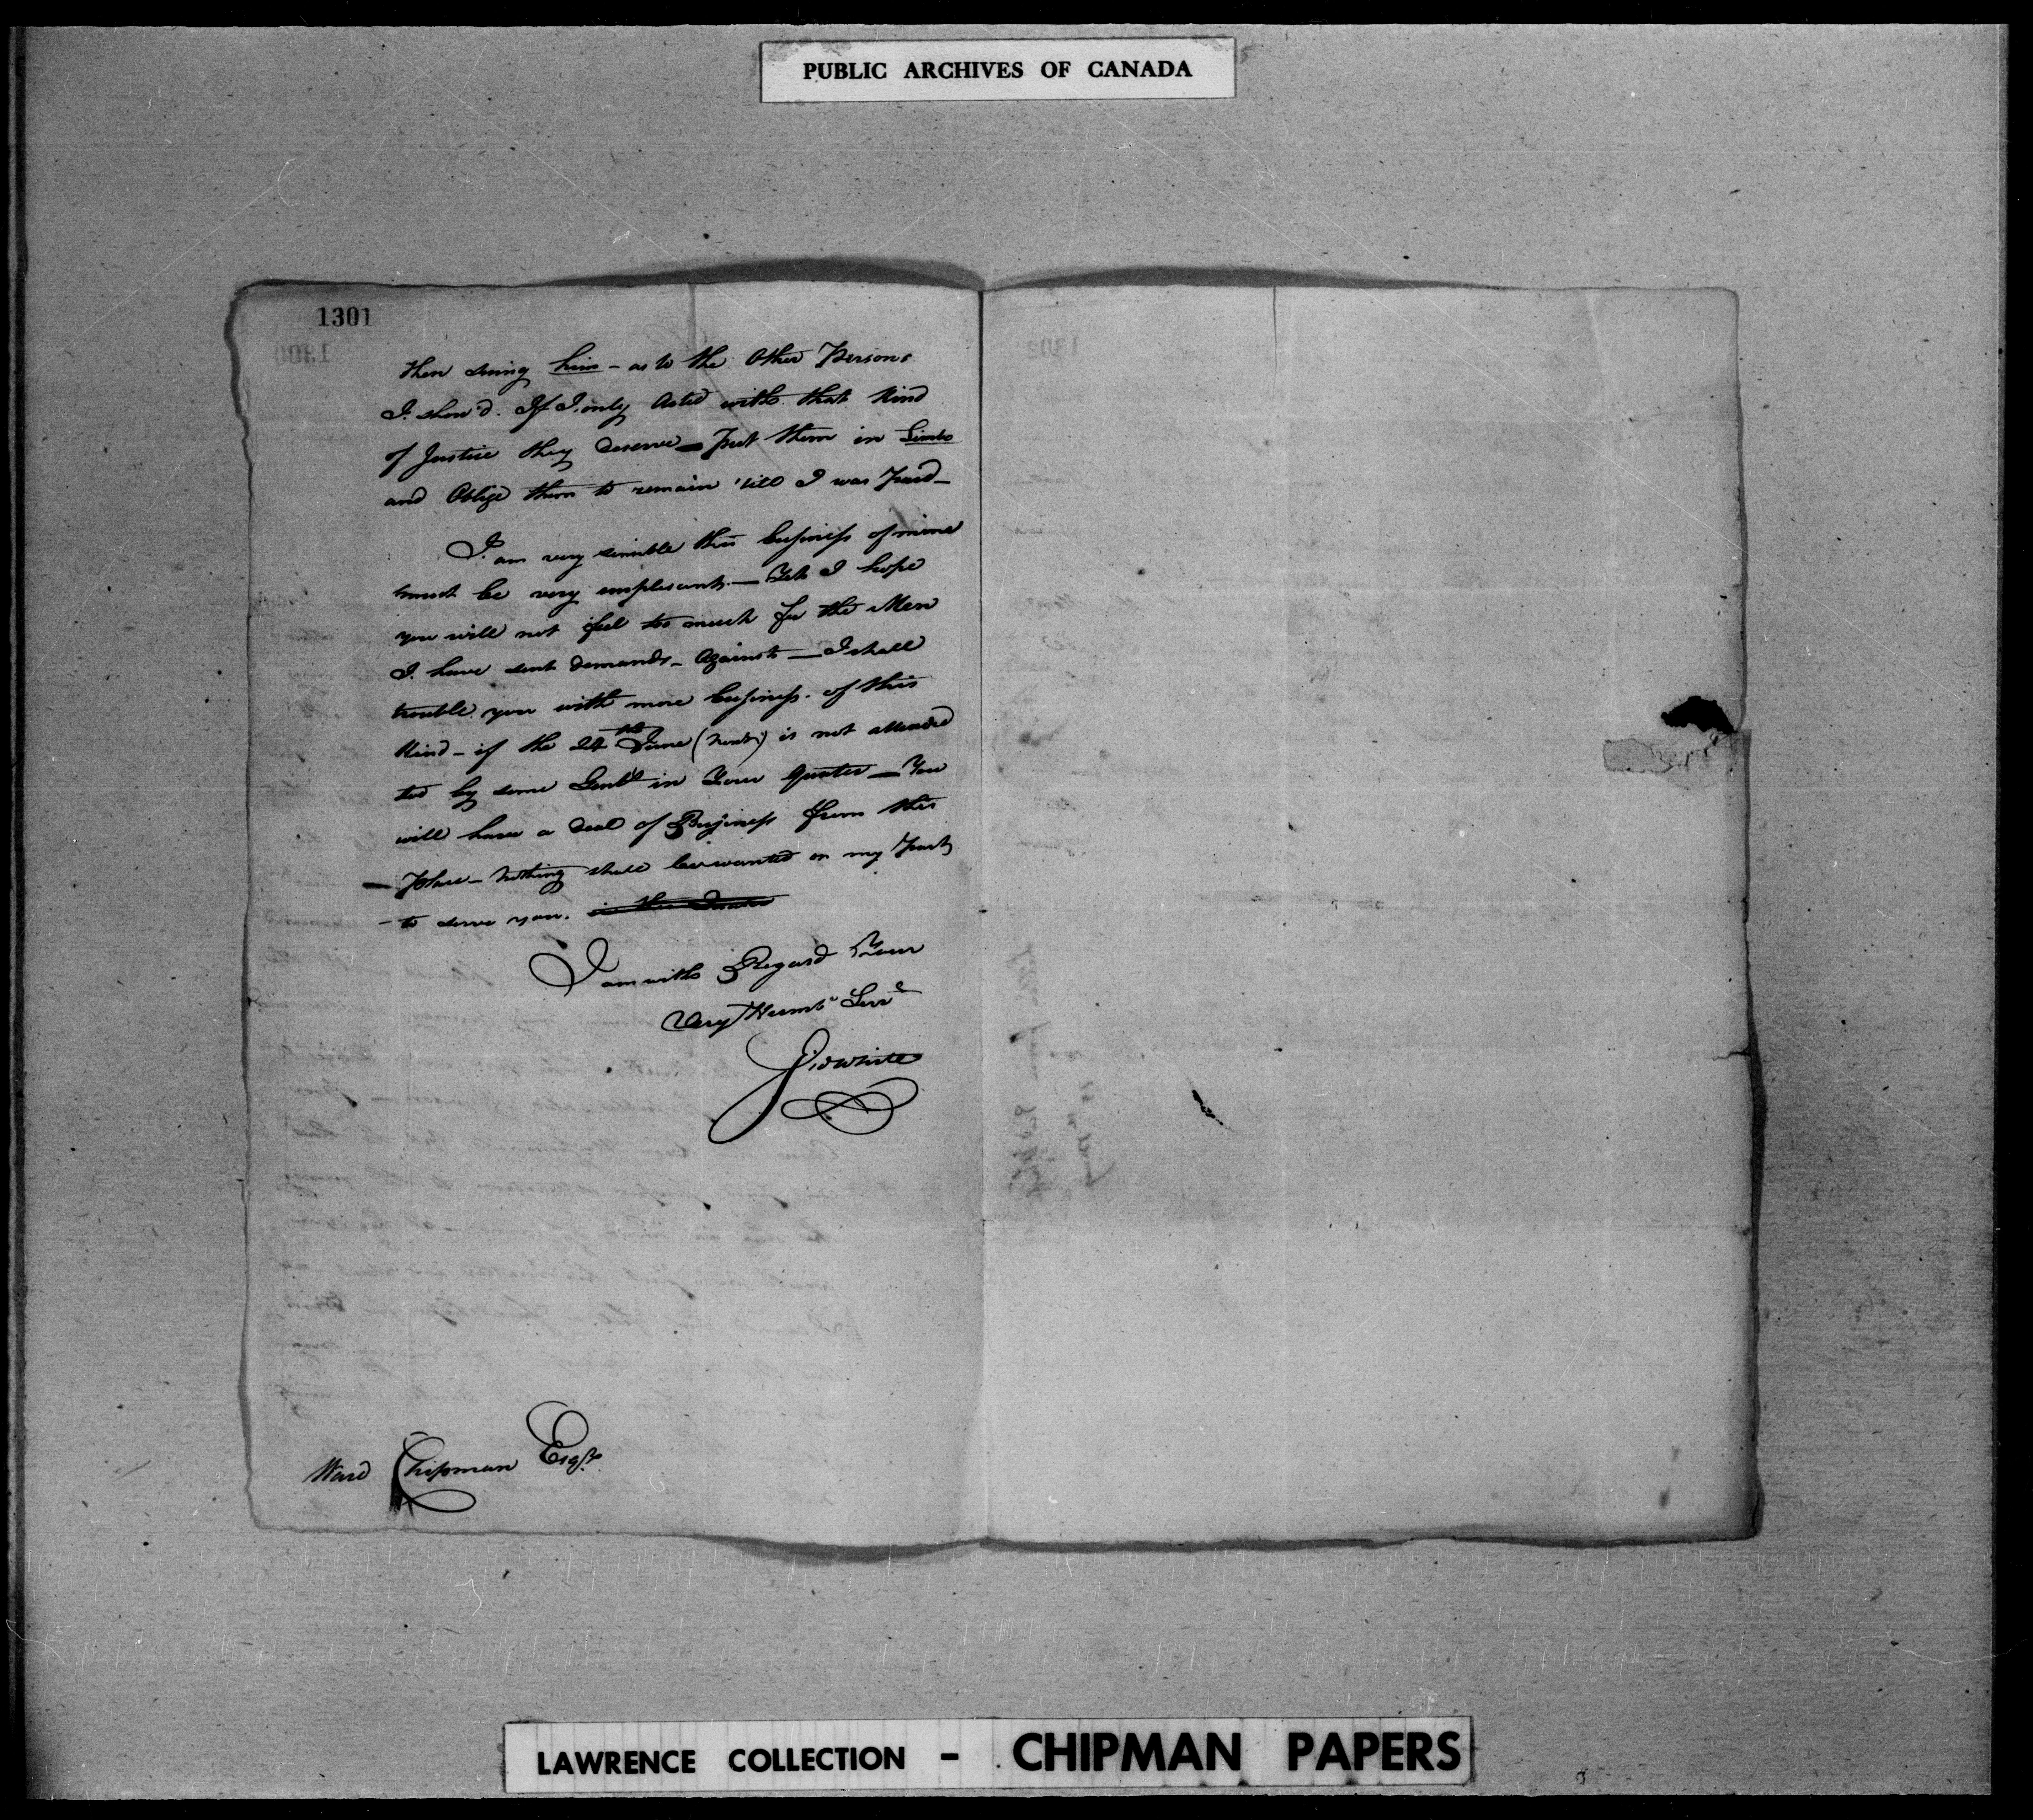 PUBLIC ARCHIVES OF CANADA
1301
then suing him - as to the Other Persons
I shou'd. If I only Acted with that Kind
of Justice they deserve — Put them in Limbo
and Oblige them to remain 'till I was Paid —
I am very sensible this business of mine
must be very unplesant. — Yet I hope
you will not feel too much for the Men
I have sent demands - Against — I shall
trouble you with more business. of this
Kind - if the 24th June (next) is not attended
too by some Gent in Your Quater — You
will have a deal of Business from this
— Place - nothing shall be wanted on my Part
- to serve you.
I am with Regard Your
Very Humb Serv
Gid White
Ward Chipman Esqr.
LAWRENCE COLLECTION - CHIPMAN PAPERS